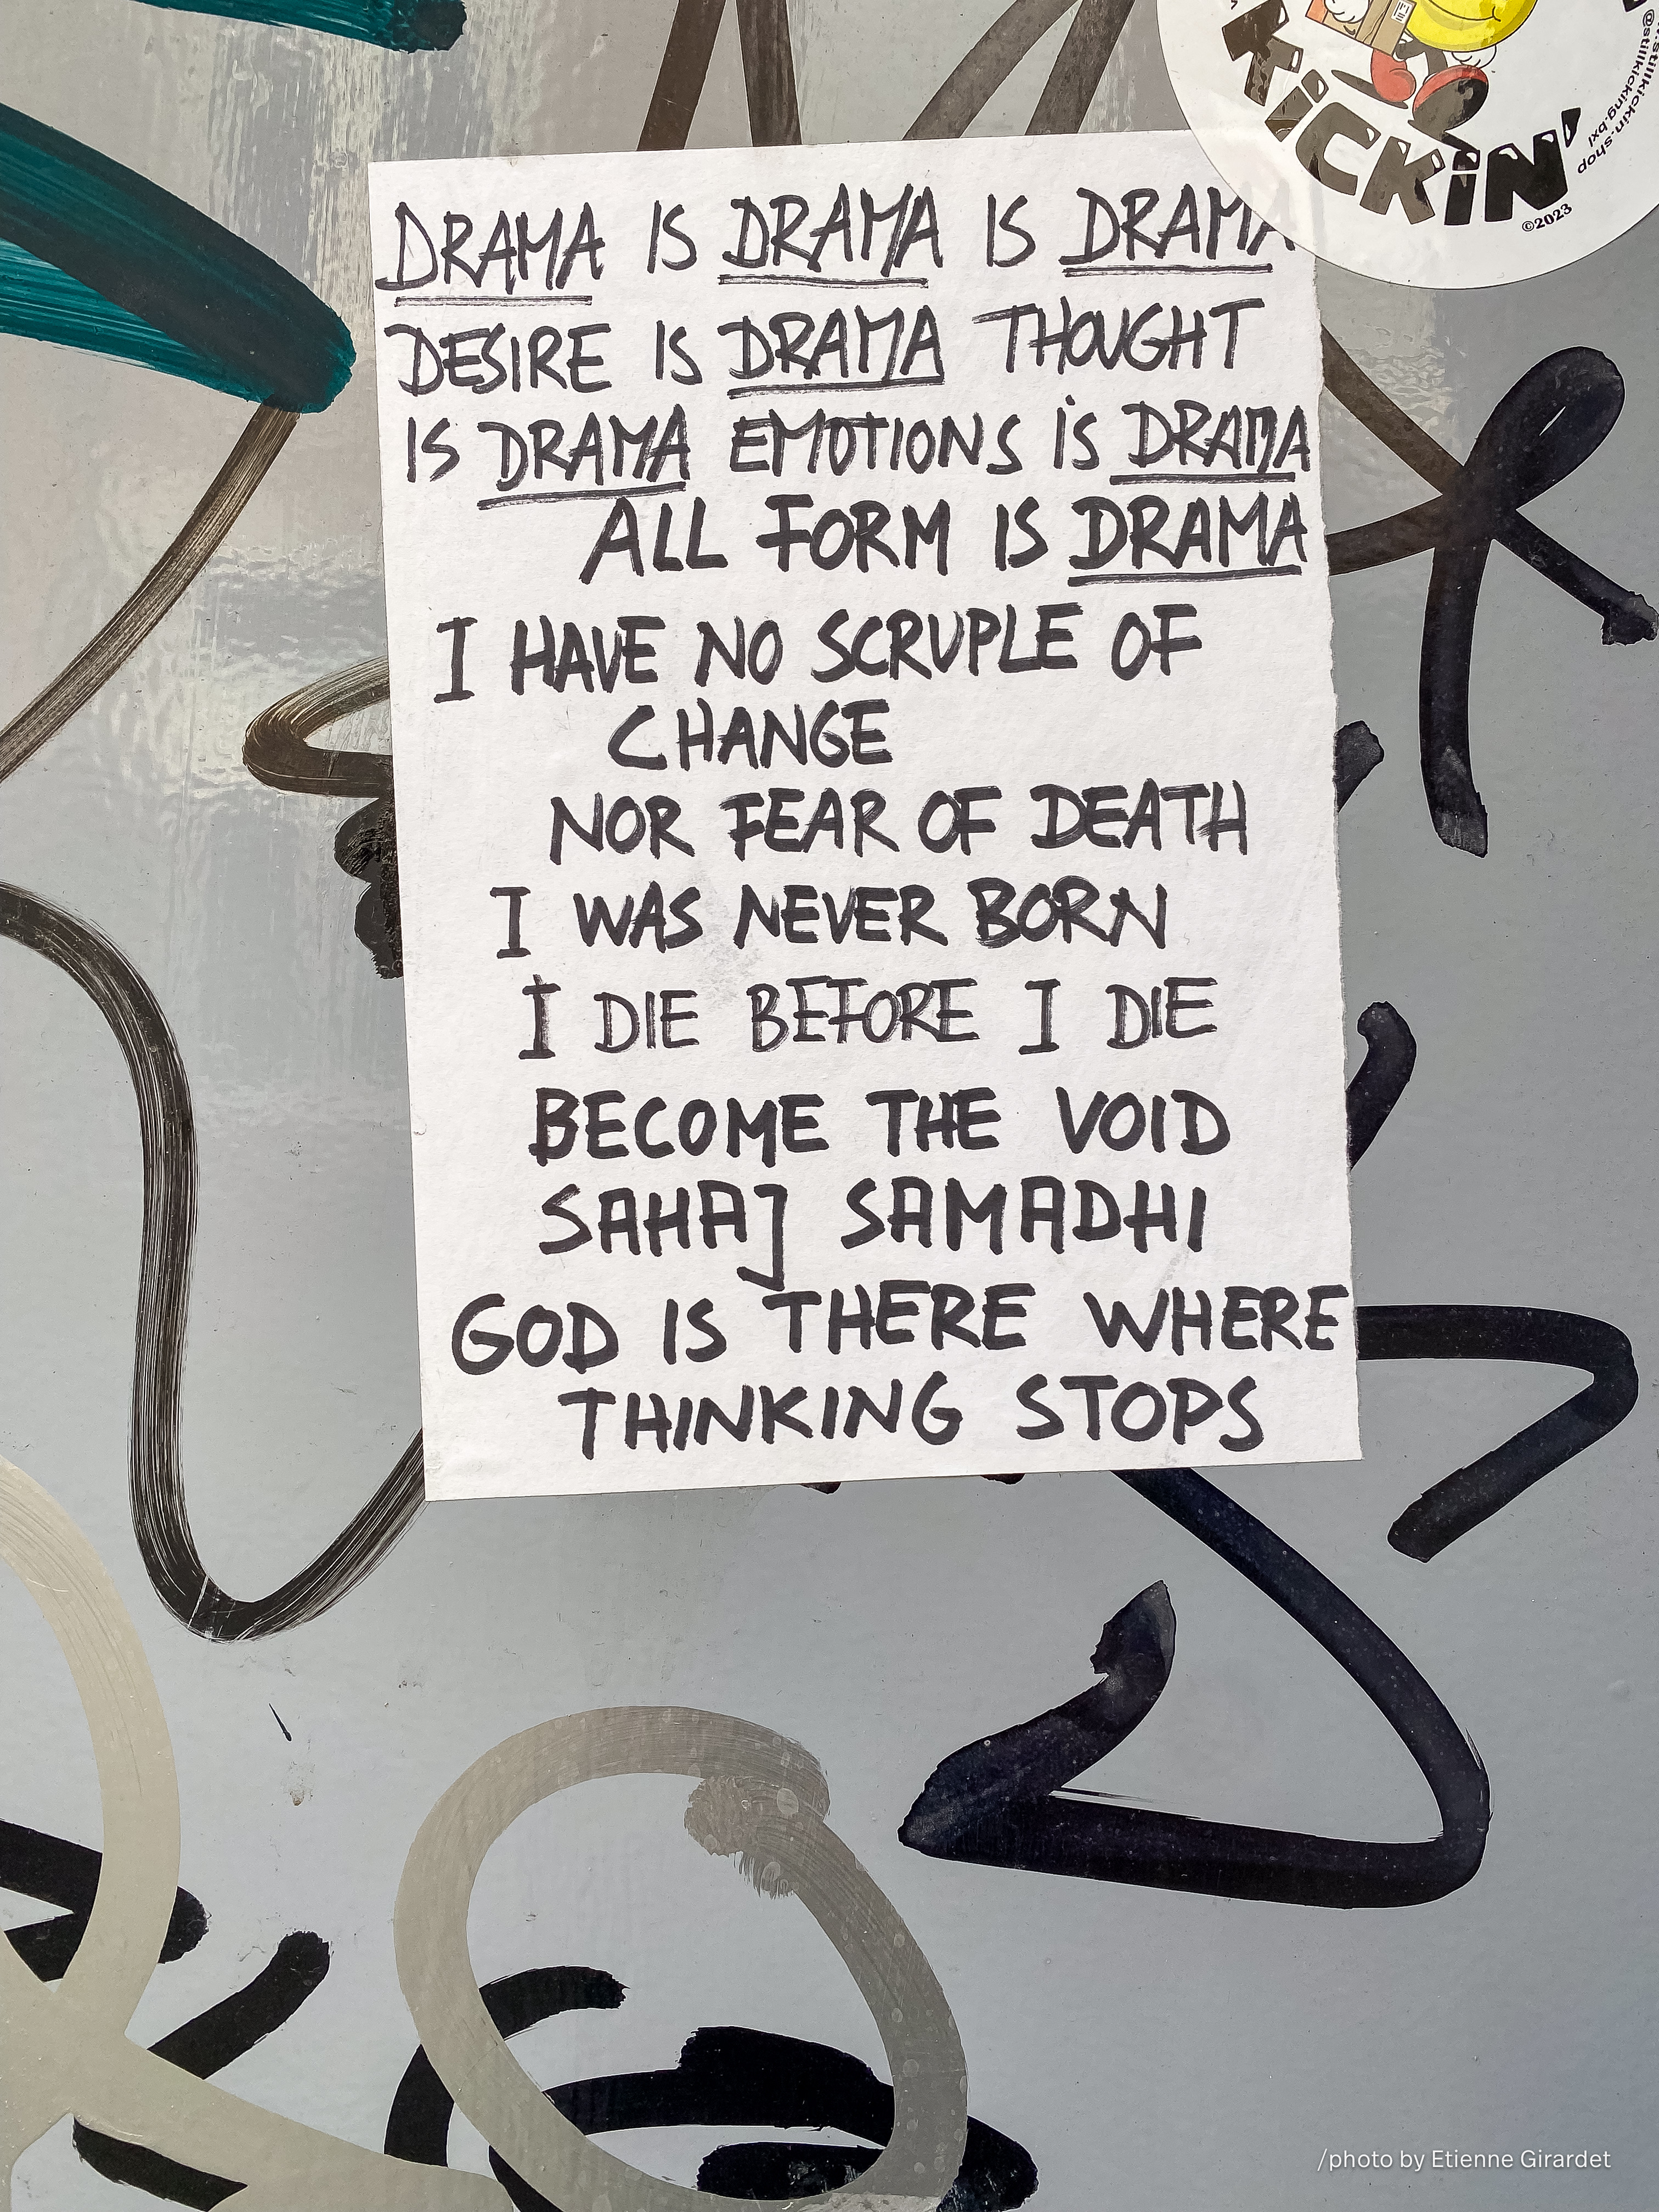 KICKIN'
©2023
@stillkicking.bxl
DRAMA IS DRAMA IS DRAMA
DESIRE IS DRAMA THOUGHT
IS DRAMA EMOTIONS IS DRAMA
ALL FORM IS DRAMA
I HAVE NO SCRUPLE OF
CHANGE
NOR FEAR OF DEATH
I WAS NEVER BORN
I DIE BEFORE I DIE
BECOME THE VOID
SAHAJ SAMADHI
GOD IS THERE WHERE
THINKING STOPS
/photo by Etienne Girardet